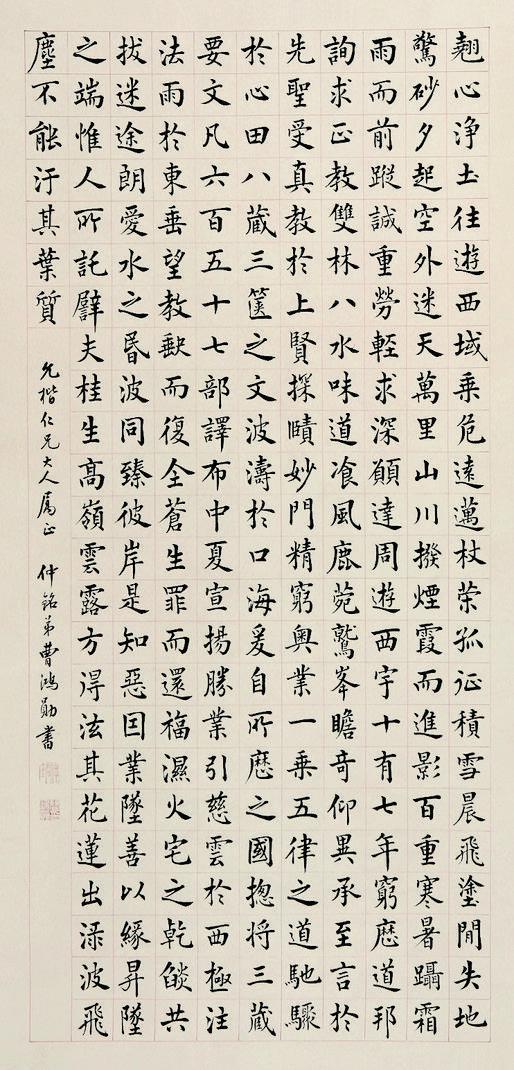 翹心浄土往遊西域乗危遠邁杖策孤征積雪晨飛塗閒失地
驚砂夕起空外迷天萬里山川撥煙霞而進影百重寒暑躡霜
雨而前蹤誠重勞輕求深願達周遊西宇十有七年窮歷道邦
詢求正教雙林八水味道飡風鹿菀鷲峯瞻奇仰異承至言於
先聖受真教於上賢探賾妙門精窮奧業一乗五律之道馳驟
於心田八藏三篋之文波濤於口海爰自所歷之國揔將三藏
要文凡六百五十七部譯布中夏宣揚勝業引慈雲於西極注
法雨於東垂望教缺而復全蒼生罪而還福濕火宅之乾燄共
拔迷途朗愛水之昏波同臻彼岸是知惡因業墜善以緣昇墜
之端惟人所託譬夫桂生高嶺雲露方得泫其花蓮出淥波飛
塵不能汙其葉質
允楷仁兄大人屬正 仲銘弟曹鴻勛書